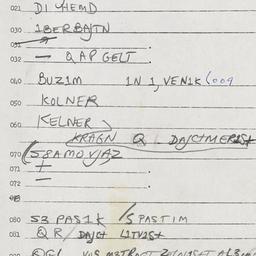 021 DI HEMD
030 1BERBAJTN
031
032 — QAP GELT
040 BUZ1M 1N 1, VEN1K (009
050 KOLNER
060 KELNER
KRAGN Q DAJCTMERIST
070 (S8AMOVJAZ
071 +
072 —
080 S3 PAS1K /S PASTIM
081 QR/ DAJCT LITVIST